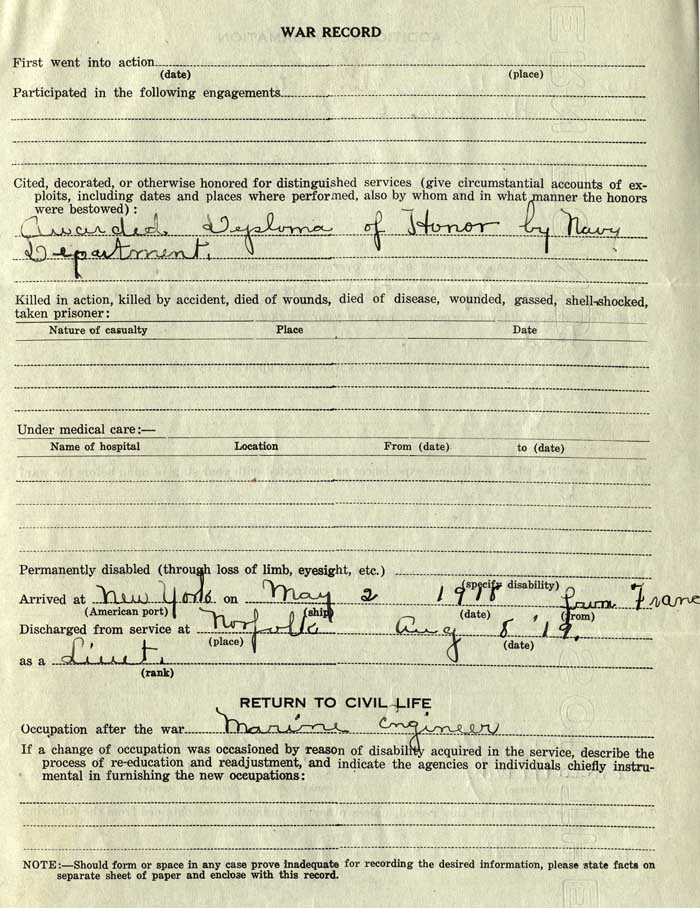 WAR RECORD
First went into action
(date) (place)
Participated in the following engagements
Cited, decorated, or otherwise honored for distinguished services (give circumstantial accounts of ex-
ploits, including dates and places where performed, also by whom and in what manner the honors
were bestowed):
Awarded Deploma of Honor by Navy
Department.
Killed in action, killed by accident, died of wounds, died of disease, wounded, gassed, shell-shocked,
taken prisoner:
Nature of casualty Place Date
Under medical care:—
Name of hospital Location From (date) to (date)
Permanently disabled (through loss of limb, eyesight, etc.)
(specify disability)
Arrived at New York on May 2 1918 from Franc
(American port) (ship) (date) (from)
Discharged from service at Norfolk Aug 8 '19.
(place) (date)
as a Lieut.
(rank)
RETURN TO CIVIL LIFE
Occupation after the war Marine Engineer
If a change of occupation was occasioned by reason of disability acquired in the service, describe the
process of re-education and readjustment, and indicate the agencies or individuals chiefly instru-
mental in furnishing the new occupations:
NOTE:—Should form or space in any case prove inadequate for recording the desired information, please state facts on
separate sheet of paper and enclose with this record.